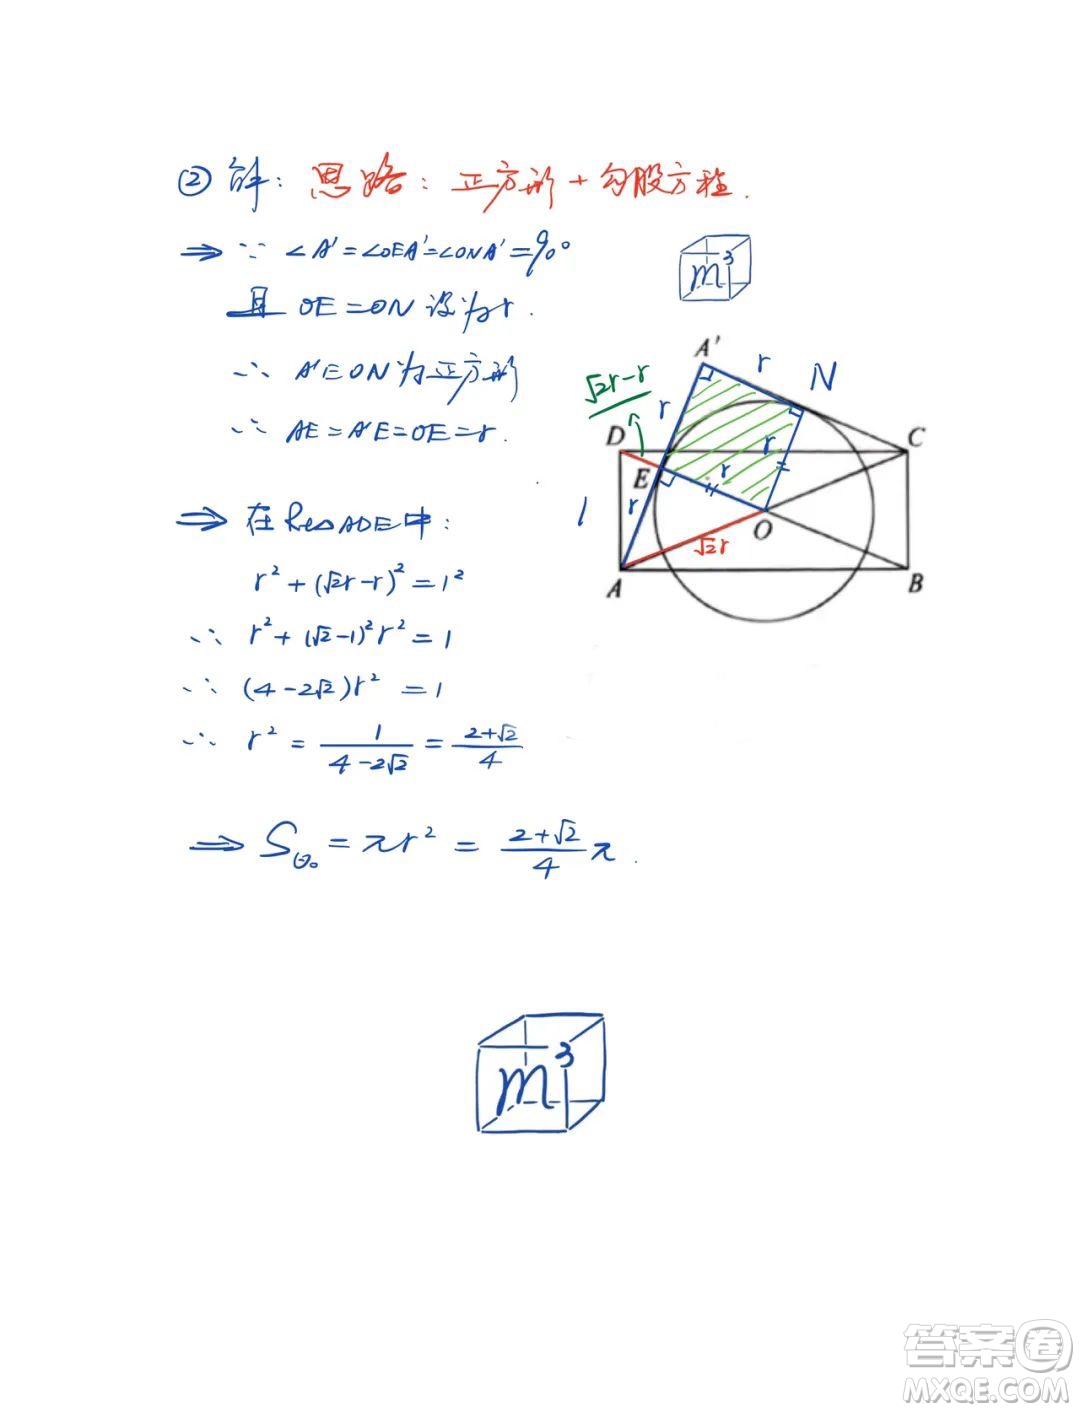 ② 解：思路：正方形 + 勾股方程.
⇒ ∵ ∠A'=∠OEA'=∠ONA'=90°
且 OE=ON 设为r.
∴ A'EON为正方形
∴ AE=A'E=OE=r.
⇒ 在Rt△ADE中:
r²+(√2r-r)²=1²
∴ r²+(√2-1)²r²=1
∴ (4-2√2)r²=1
∴ r²=1/(4-2√2)=(2+√2)/4
⇒ S⊙O=πr²=(2+√2)/4π.
m³
A' r N
√2r-r r
D r C
E r
1 r O
√2r
A B
m³
答案圈
MXQE.COM